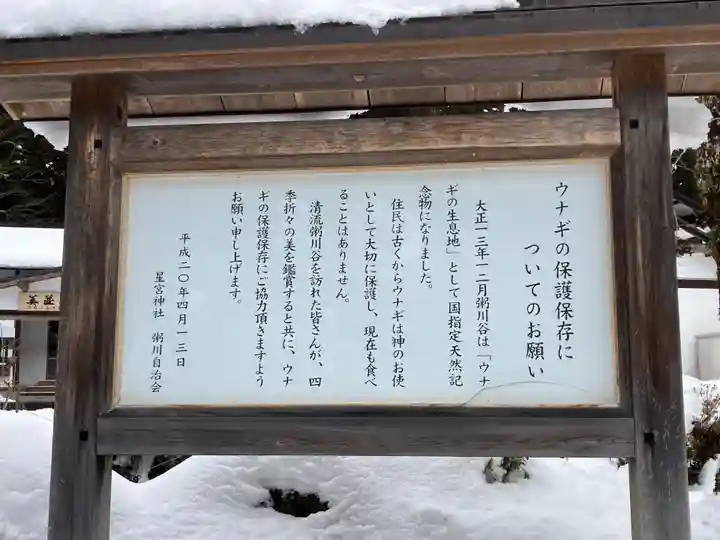 ウナギの保護保存に
ついてのお願い
大正一三年一二月粥川谷は「ウナ
ギの生息地」として国指定天然記
念物になりました。
住民は古くからウナギは神のお使
いとして大切に保護し、現在も食べ
ることはありません。
清流粥川谷を訪れた皆さんが、四
季折々の美を鑑賞すると共に、ウナ
ギの保護保存にご協力頂きますよう
お願い申し上げます。
平成二〇年四月一三日
星宮神社 粥川自治会